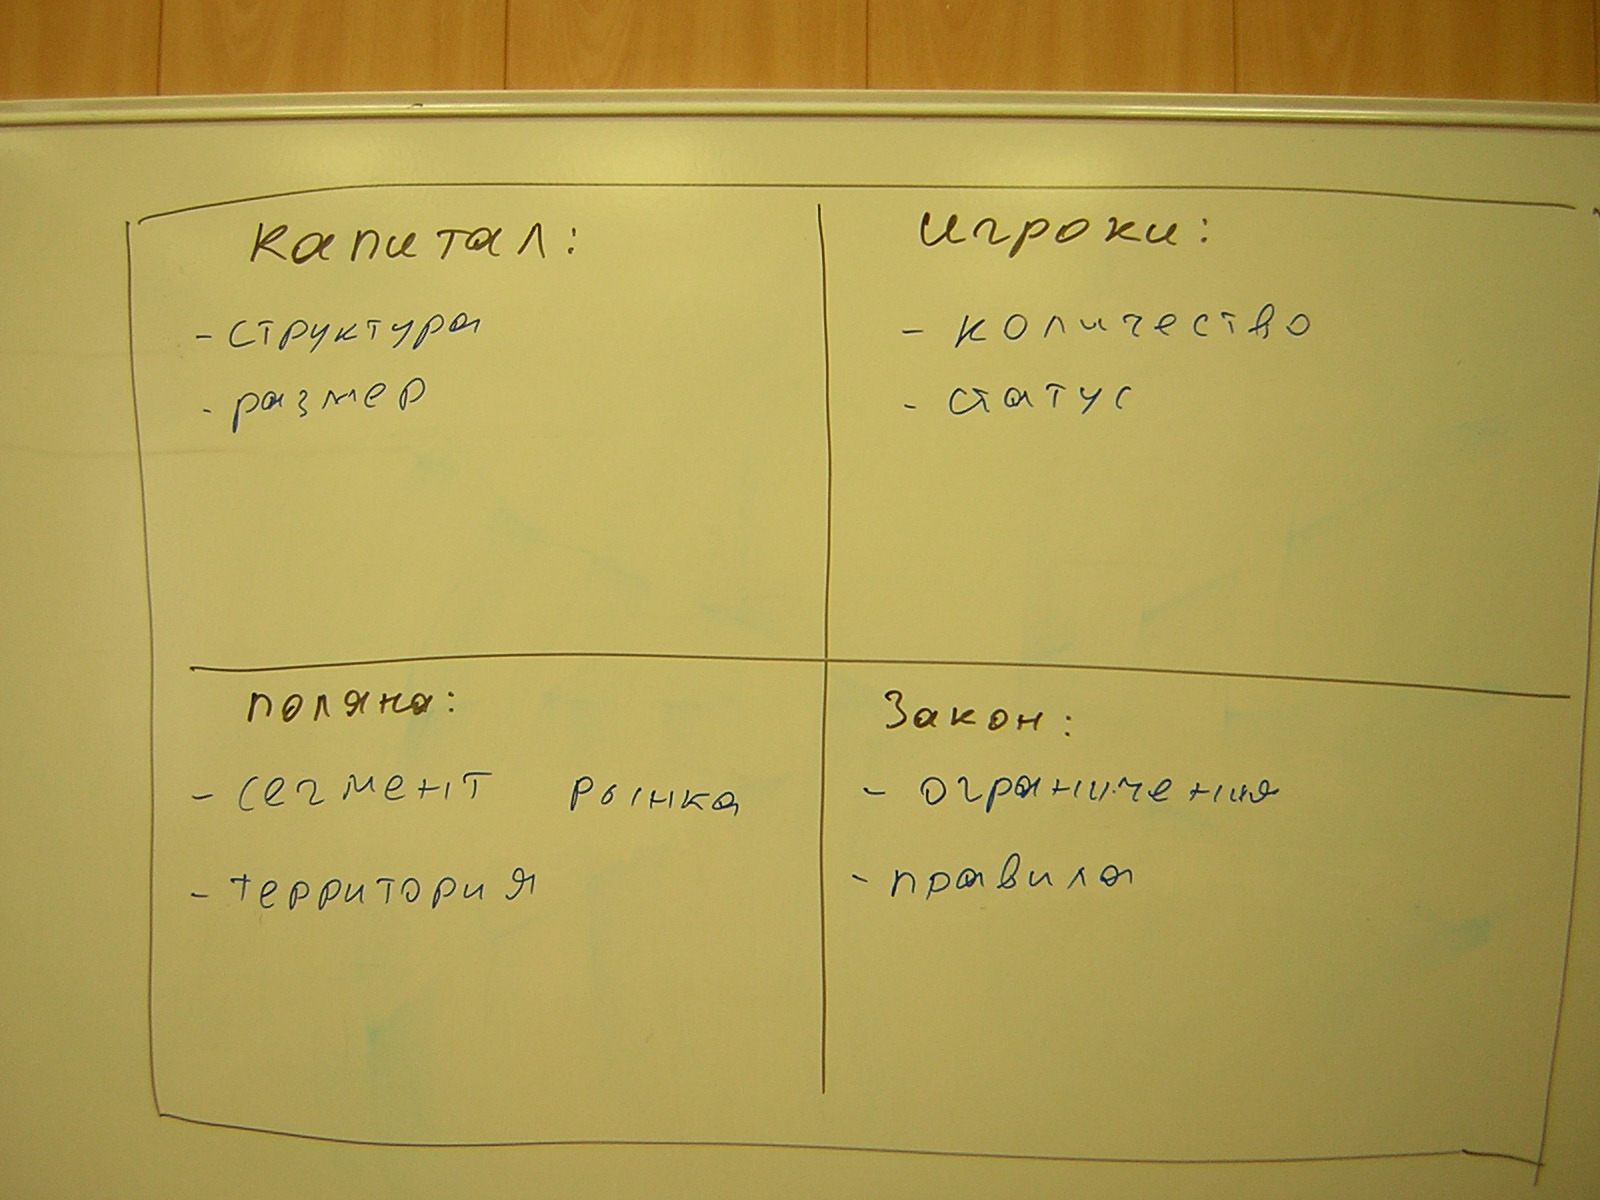 Капитал:
- структура
- размер
Игроки:
- количество
- статус
поляна:
- сегмент рынка
- территория
Закон:
- ограничения
- правила